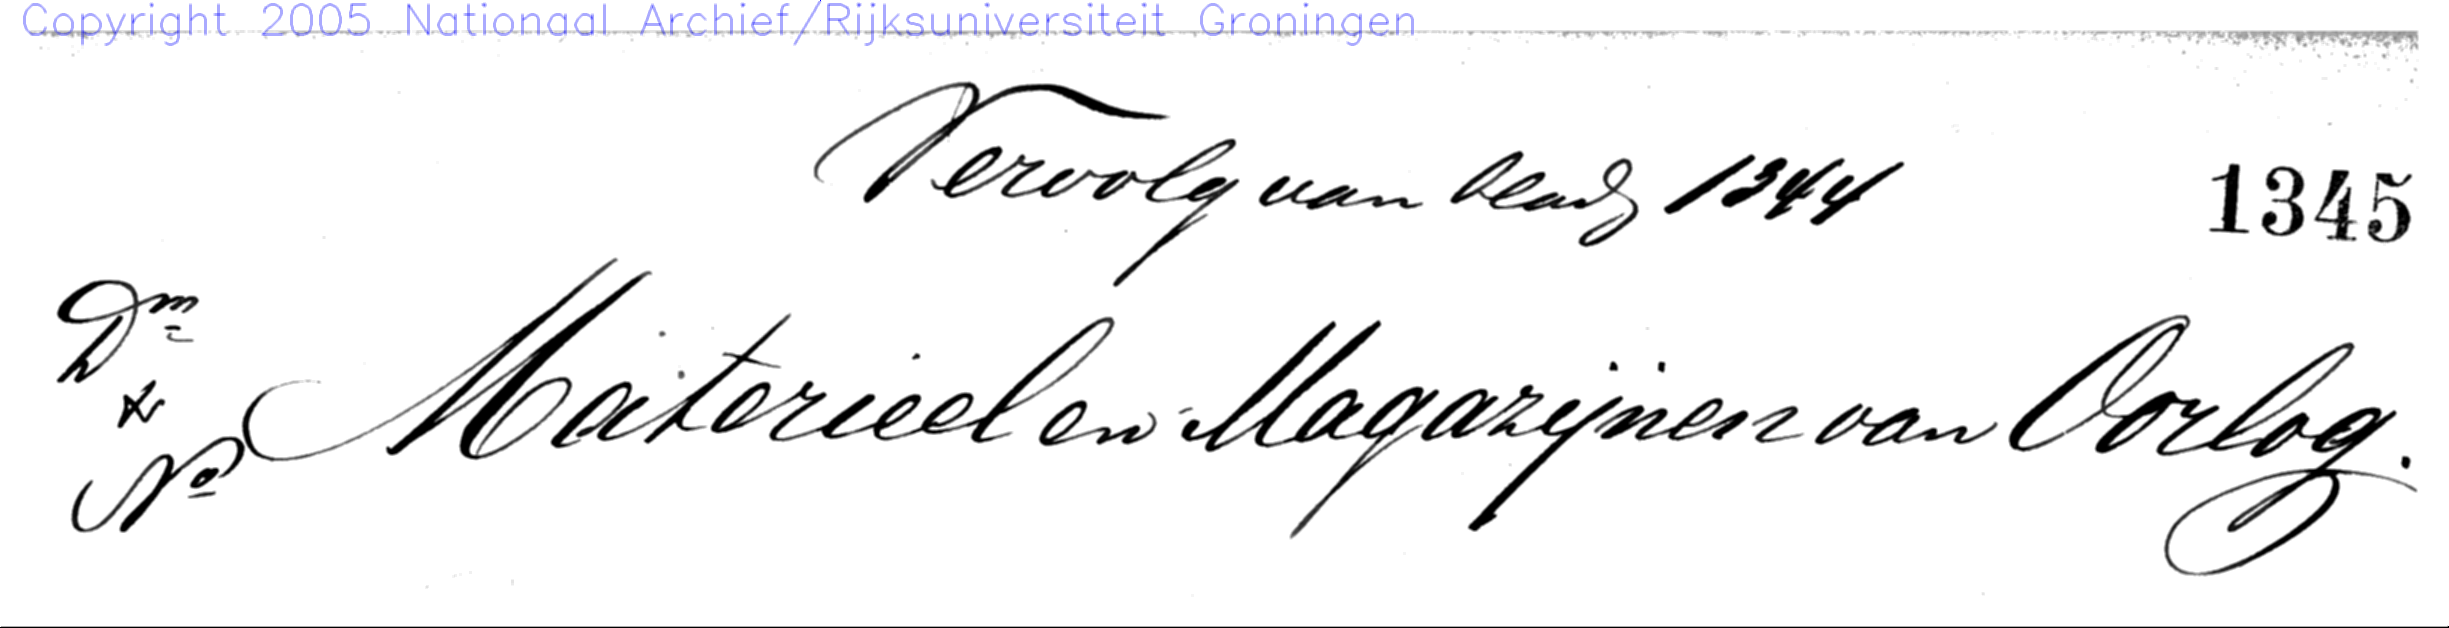 Copyright 2005 Nationaal Archief/Rijksuniversiteit Groningen
Vervolg van bladz 1344 1345
Dm
&
No
Materieel en Magazijnen van Oorlog.